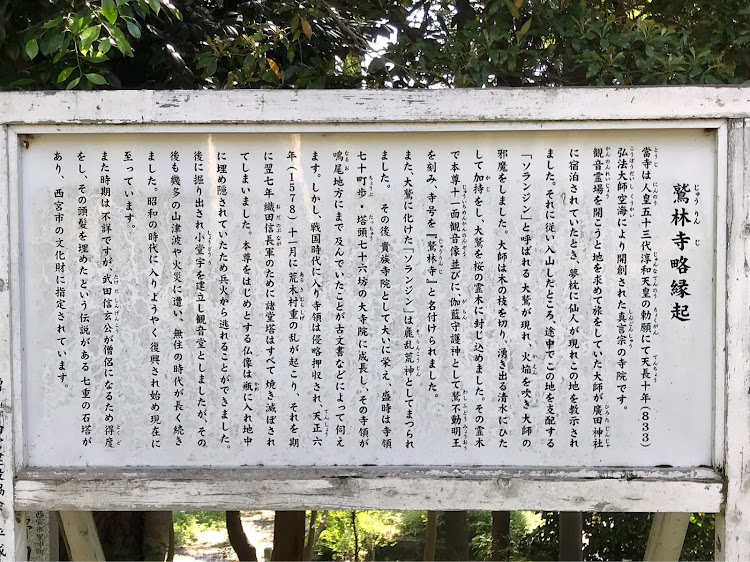 鷲林寺略縁起
じゅうりんじ
當寺は、人皇五十三代淳和天皇の勅願にて天長十年(833)
弘法大師空海により開創された真言宗の寺院です。
観音霊場を開こうと地を求めて旅をしていた大師が廣田神社
に宿泊されていたとき、夢枕に仙人が現れこの地を教示され
ました。それに従い入山したところ、途中でこの地を支配する
「ソランジン」と呼ばれる大鷲が現れ、火焔を吹き大師の
邪魔をしました。大師は木の枝を切り、湧き出る清水にひた
して加持をし、大鷲を桜の霊木に封じ込めました。その霊木
で本尊十一面観音像並びに、伽藍守護神として鷲不動明王
を刻み、寺号を『鷲林寺』と名付けられました。
また、大鷲に化けた「ソランジン」は麁乱荒神としてまつられ
ました。 その後貴族寺院として大いに栄え、盛時は寺領
七十町歩・塔頭七十六坊の大寺院に成長し、その寺領が
鳴尾地方にまで及んでいたことが古文書などによって伺え
ます。しかし、戦国時代に入り寺領は侵略押収され、天正六
年(1578)十一月に荒木村重の乱が起こり、それを期
に翌七年織田信長軍のために諸堂塔はすべて焼き滅ぼされ
てしまいました。本尊をはじめとする仏像は瓶に入れ地中
に埋め隠されていたため兵火から逃れることができました。
後に掘り出され小堂宇を建立し観音堂としましたが、その
後も幾多の山津波や火災に遭い、無住の時代が長く続き
ました。昭和の時代に入りようやく復興され始め現在に
至っています。
また時期は不詳ですが、武田信玄が僧侶になるため得度
をし、その頭髪を埋めたという伝説がある七重の石塔が
あり、西宮市の文化財に指定されています。